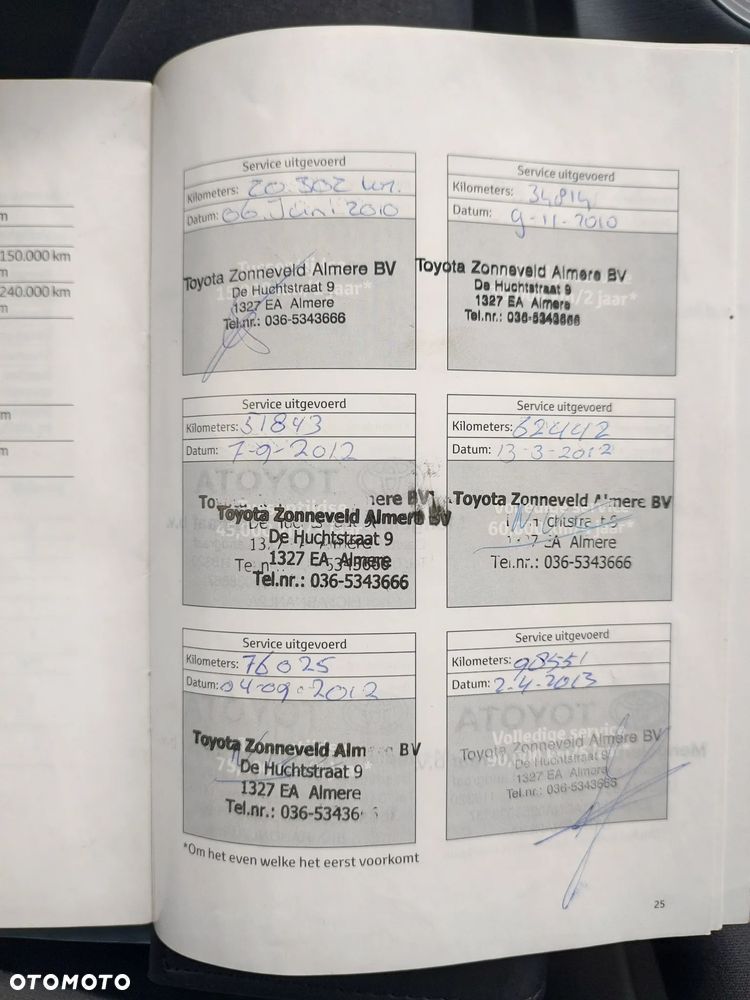 m
150.000 km
m
240.000 km
m
m
m
Service uitgevoerd
Kilometers: 20.302 km.
Datum: 06 Juni 2010
jaar*
Toyota Zonneveld Almere BV
De Huchtstraat 9
1327 EA Almere
Tel.nr.: 036-5343666
Service uitgevoerd
Kilometers: 34814
Datum: 9-11-2010
/2 jaar*
Toyota Zonneveld Almere BV
De Huchtstraat 9
1327 EA Almere
Tel.nr.: 036-5343666
Service uitgevoerd
Kilometers: 51843
Datum: 7-9-2012
Toyota Zonneveld Almere BV
De Huchtstraat 9
1327 EA Almere
Tel.nr.: 036-5343666
Service uitgevoerd
Kilometers: 62442
Datum: 13-3-2012
Toyota Zonneveld Almere BV
EA Almere
Tel.nr.: 036-5343666
Service uitgevoerd
Kilometers: 76025
Datum: 04-09-2012
Toyota Zonneveld Alm BV
De Huchtstraat 9
1327 EA Almere
Tel.nr.: 036-53436
Service uitgevoerd
Kilometers: 98551
Datum: 2-4-2013
Volledige service
Toyota Zonneveld Almere BV
De Huchtstraat 9
1327 EA Almere
Tel.nr.: 036-5343666
*Om het even welke het eerst voorkomt
25
OTOMOTO